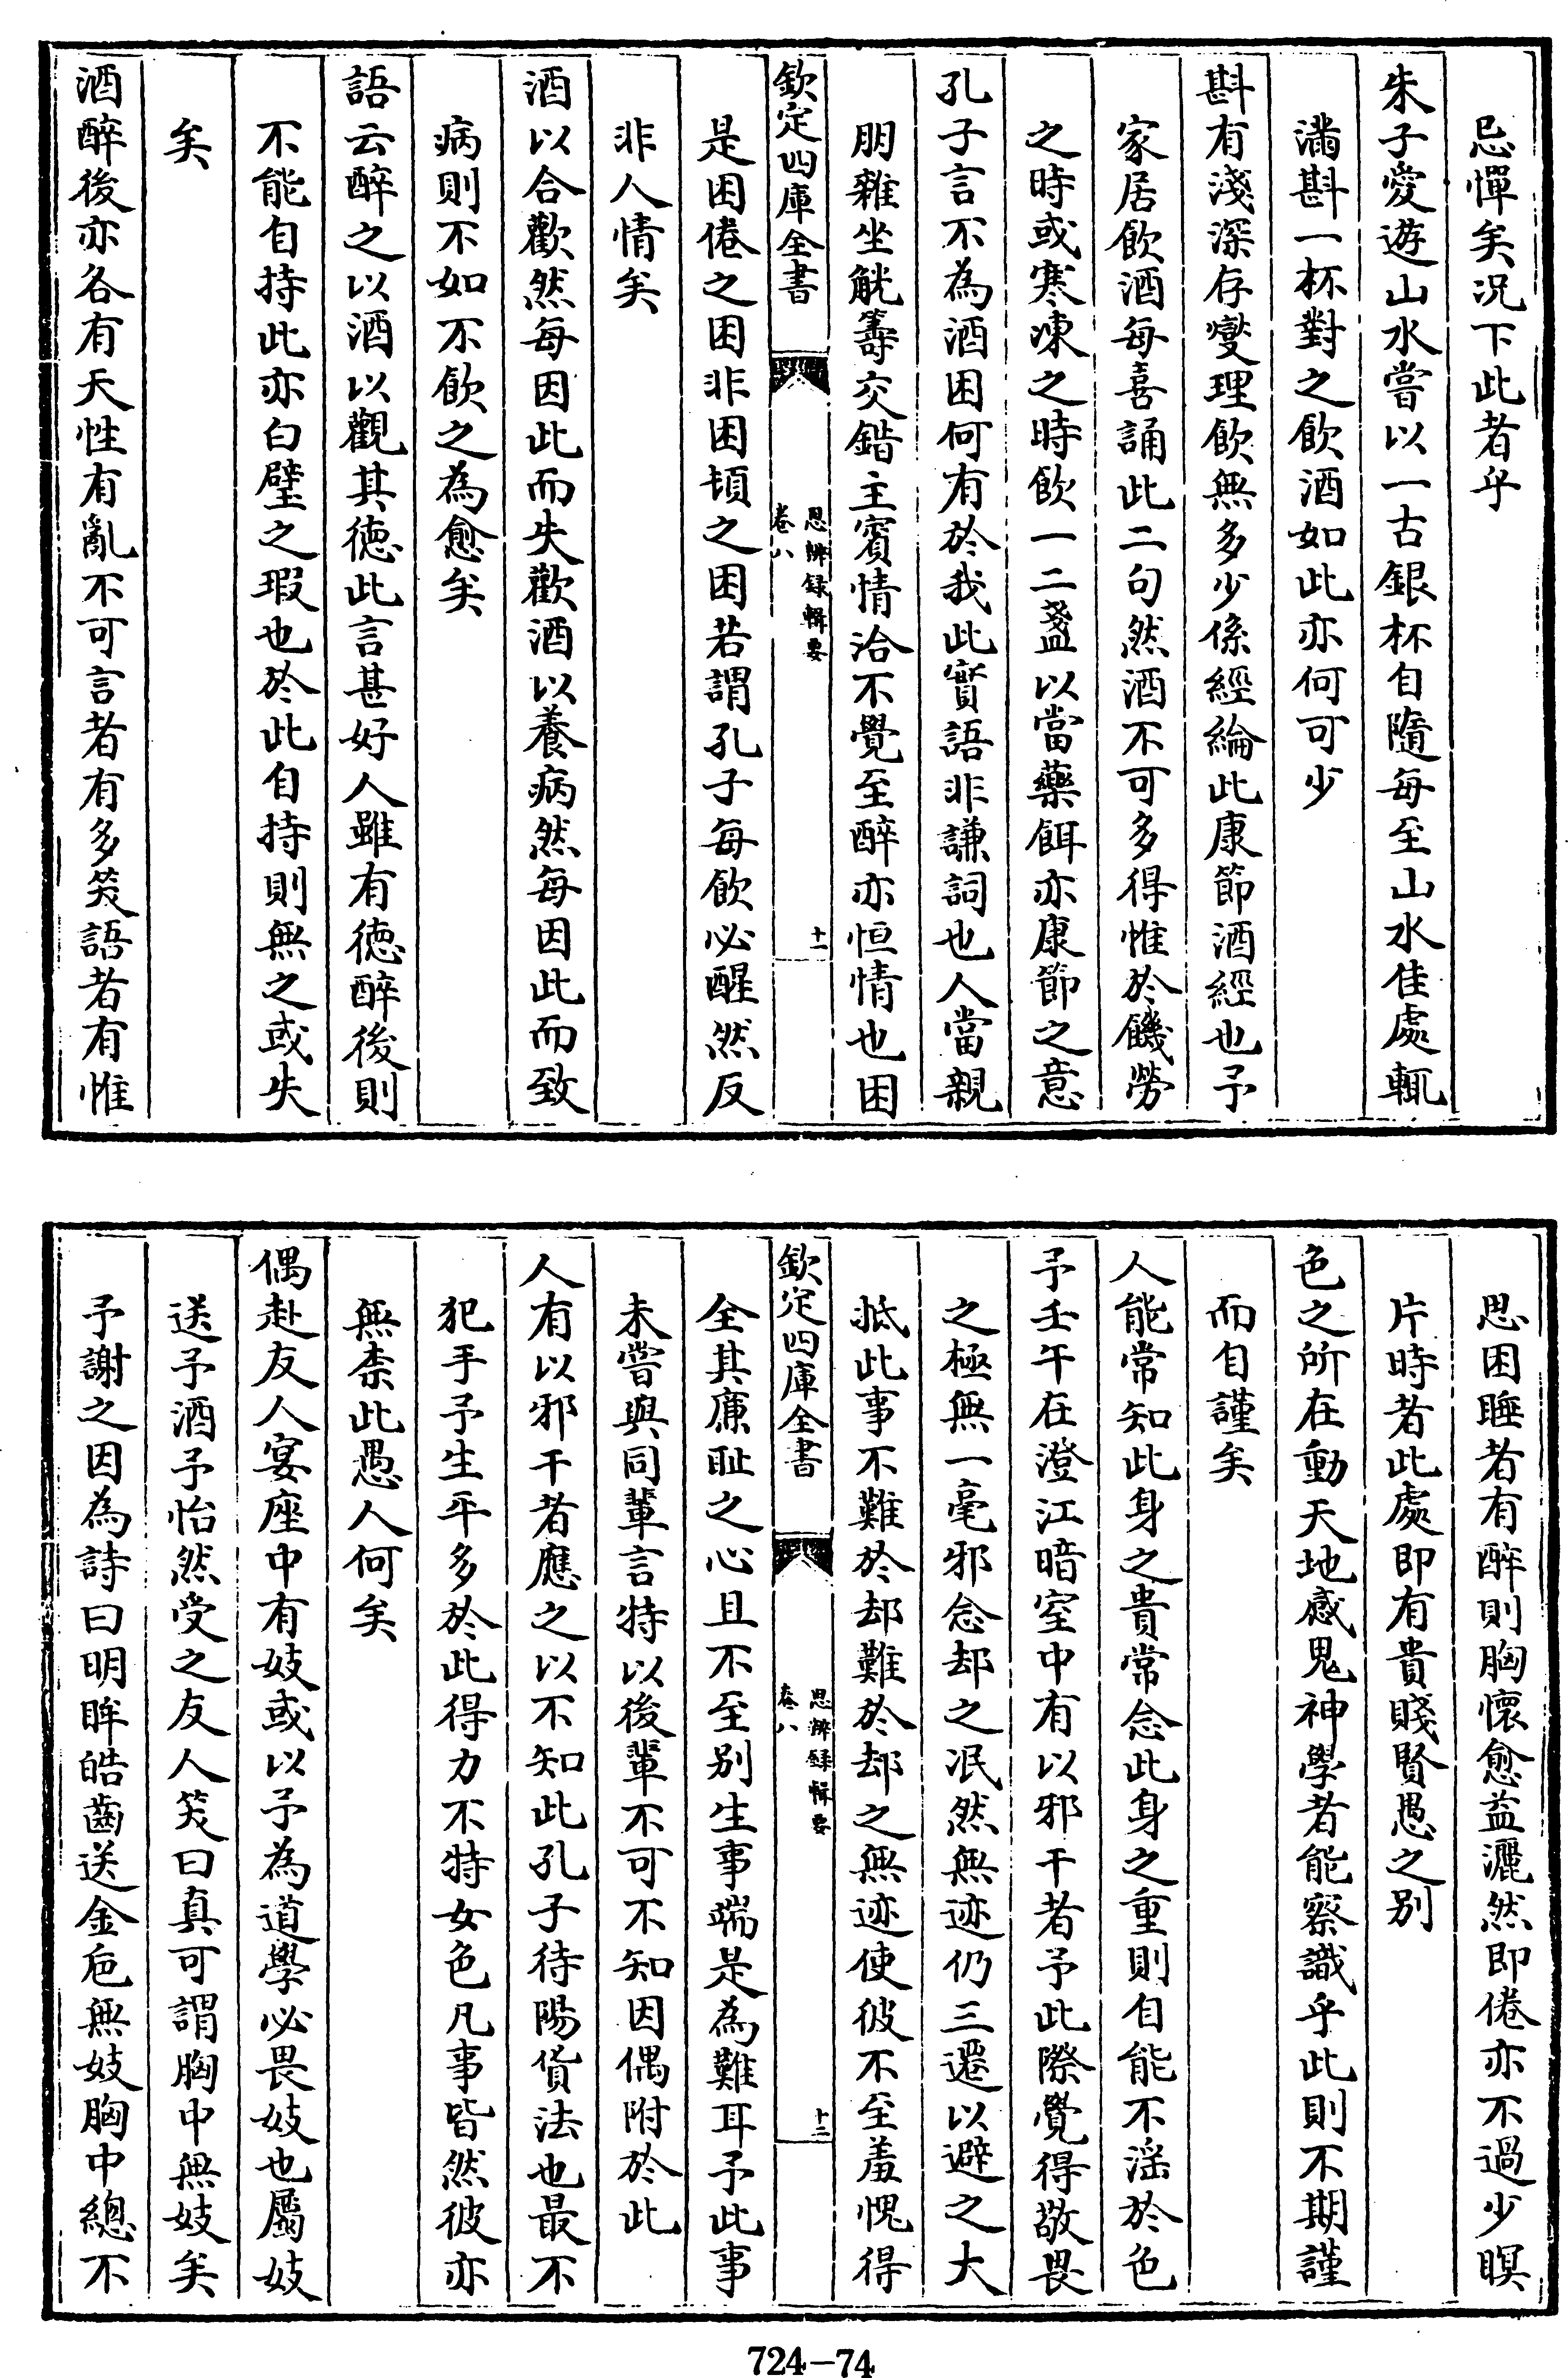 忌憚矣况下此者乎
朱子愛遊山水嘗以一古銀杯自隨每至山水佳處輒
滿斟一杯對之飲酒如此亦何可少
斟有淺深存燮理飲無多少係經綸此康節酒經也予
家居飲酒每喜誦此二句然酒不可多得惟於饑勞
之時或寒凍之時飲一二盞以當藥餌亦康節之意
孔子言不為酒困何有於我此實語非謙詞也人當親
朋雜坐觥籌交錯主賓情洽不覺至醉亦恒情也困
欽定四庫全書
思辨録輯要
卷八
十一
是困倦之困非困頓之困若謂孔子每飲必醒然反
非人情矣
酒以合歡然每因此而失歡酒以養病然每因此而致
病則不如不飲之為愈矣
語云醉之以酒以觀其徳此言甚好人雖有徳醉後則
不能自持此亦白璧之瑕也於此自持則無之或失
矣
酒醉後亦各有天性有亂不可言者有多笑語者有惟
思困睡者有醉則胸懷愈益灑然即倦亦不過少瞑
片時者此處即有貴賤賢愚之别
色之所在動天地感鬼神學者能察識乎此則不期謹
而自謹矣
人能常知此身之貴常念此身之重則自能不滛於色
予壬午在澄江暗室中有以邪干者予此際覺得敬畏
之極無一毫邪念却之泯然無迹仍三遷以避之大
抵此事不難於却難於却之無迹使彼不至羞愧得
欽定四庫全書
思辨録輯要
卷八
十二
全其亷耻之心且不至别生事端是為難耳予此事
未嘗與同輩言特以後輩不可不知因偶附於此
人有以邪干者應之以不知此孔子待陽貨法也最不
犯手予生平多於此得力不特女色凡事皆然彼亦
無柰此愚人何矣
偶赴友人宴座中有妓或以予為道學必畏妓也屬妓
送予酒予怡然受之友人笑曰真可謂胸中無妓矣
予謝之因為詩曰明眸皓齒送金巵無妓胸中總不
724-74